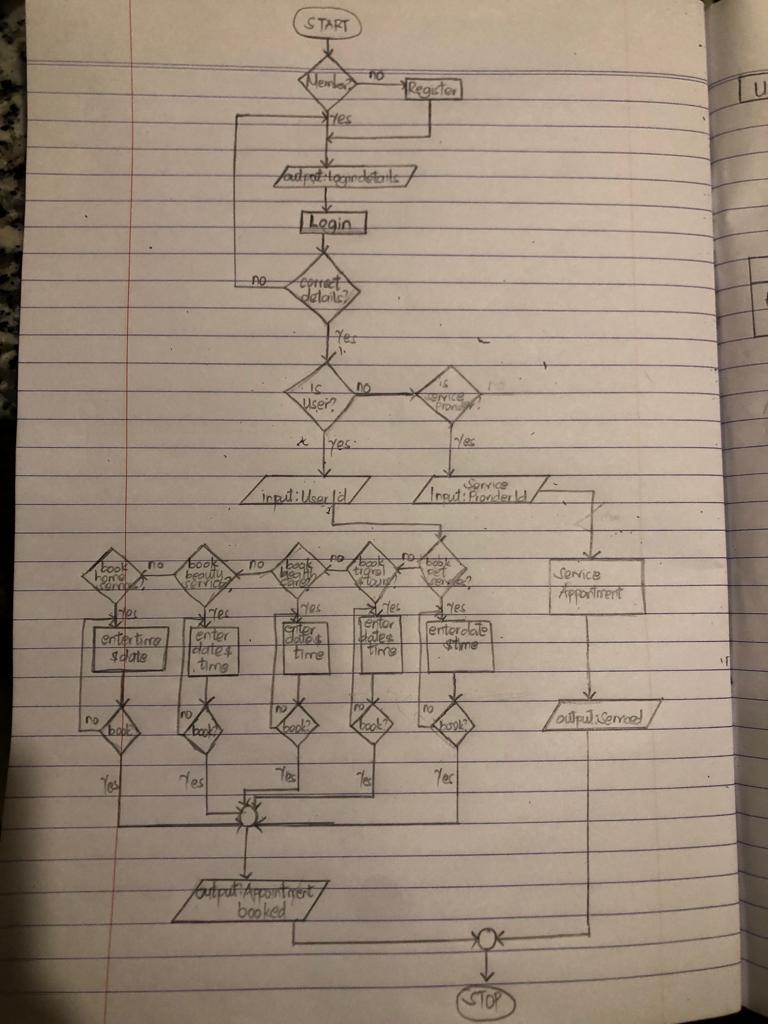 START
Member?
no
Register
U
Yes
output:Logindetails
Login
correct
details?
no
Yes
is
User?
no
is
service
Provider?
Yes
Yes
input:UserId
Service
Input:ProviderId
book
home
service?
no
book
beauty
service?
no
book
health
care?
no
book
no
book
pet
service?
Service
Appointment
Yes
Yes
Yes
Yes
Yes
enter time
&date
enter
date&
time
enter
date&
time
enter
date&
time
enter date
&time
no
book
no
book?
no
book?
no
book?
no
book?
output:Serviced
Yes
Yes
Yes
Yes
Yes
output:Appointment
booked
STOP